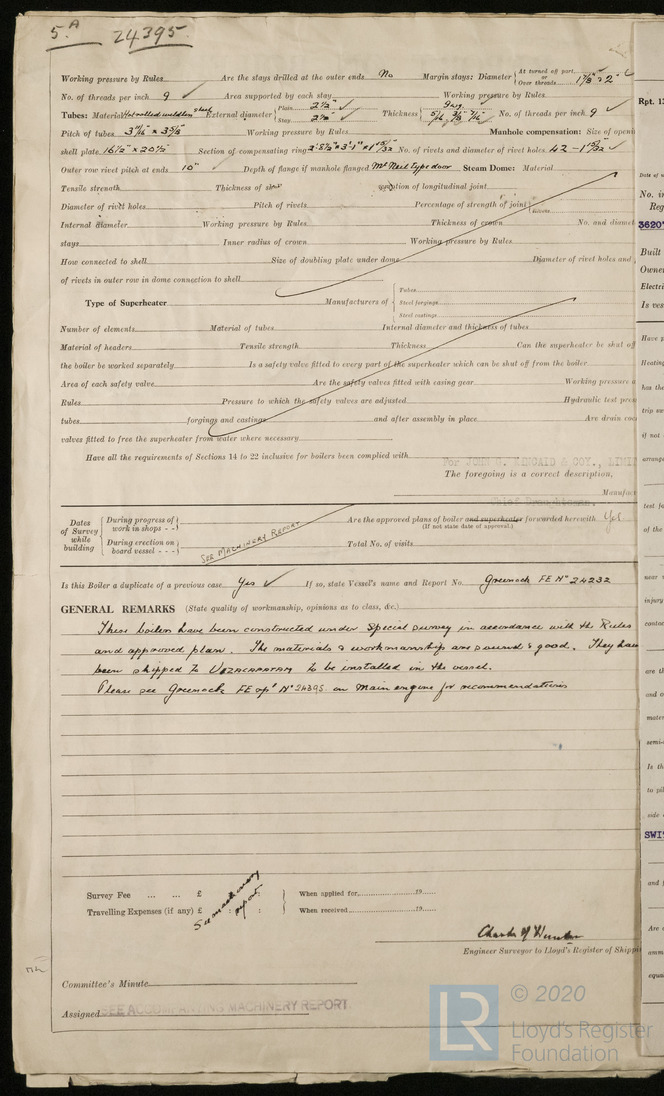 5.A 24395.
Working pressure by Rules Are the stays drilled at the outer ends No Margin stays: Diameter { At turned off part, or Over threads 1 7/8" & 2" ✓
No. of threads per inch 9 ✓ Area supported by each stay Working pressure by Rules
Tubes: Material Hot rolled weldless steel External diameter { Plain 2 1/2" ✓ Stay 2 1/2" ✓ Thickness { 9 wg. 5/16, 3/8 7/16" ✓ No. of threads per inch 9 ✓
Pitch of tubes Working pressure by Rules Manhole compensation: Size of openi
shell plate 16 1/2" × 20 1/2" Section of compensating ring No. of rivets and diameter of rivet holes 42 - 1 ✓
Outer row rivet pitch at ends 10" Depth of flange if manhole flanged McNeil type door Steam Dome: Material
Tensile strength Thickness of shell Description of longitudinal joint
Diameter of rivet holes Pitch of rivets Percentage of strength of joint { Rivets
Internal diameter Working pressure by Rules Thickness of crown No. and diamet
stays Inner radius of crown Working pressure by Rules
How connected to shell Size of doubling plate under dome Diameter of rivet holes and
of rivets in outer row in dome connection to shell
Type of Superheater Manufacturers of { Tubes Steel forgings Steel castings
Number of elements Material of tubes Internal diameter and thickness of tubes
Material of headers Tensile strength Thickness Can the superheater be shut off
the boiler be worked separately Is a safety valve fitted to every part of the superheater which can be shut off from the boiler
Area of each safety valve Are the safety valves fitted with easing gear Working pressure a
Rules Pressure to which the safety valves are adjusted Hydraulic test pres
tubes forgings and castings and after assembly in place Are drain coc
valves fitted to free the superheater from water where necessary
Have all the requirements of Sections 14 to 22 inclusive for boilers been complied with
For JOHN G. KINCAID & COY., LIMI
The foregoing is a correct description,
Manufac
Chief Draughtsman.
Dates of Survey while building { During progress of work in shops - - { During erection on board vessel - - SEE MACHINERY REPORT
Are the approved plans of boiler and superheater forwarded herewith Yes
(If not state date of approval.)
Total No. of visits
Is this Boiler a duplicate of a previous case Yes ✓ If so, state Vessel's name and Report No. Greenock FE No 24232
GENERAL REMARKS (State quality of workmanship, opinions as to class, &c.)
These boilers have been constructed under Special Survey in accordance with the Rules
and approved plan. The materials & workmanship are sound & good. They have
been shipped to VIZAGAPATAM to be installed in the vessel.
Please see Greenock FE rpt No 24395 on main engine for recommendations
Survey Fee ... ... £ : : When applied for 19
Travelling Expenses (if any) £ : : When received 19
See machinery report.
Engineer Surveyor to Lloyd's Register of Shippi
Committee's Minute
Assigned SEE ACCOMPANYING MACHINERY REPORT.
Rpt. 13
Date of
No. in
Reg
3620
Built
Owne
Electri
Is ves
Have p
Heating
has the
trip sw
if not
arrange
test fo
of the
near
injury
contac
are th
and o
mater
semi-
Is th
to pi
side
SWI
and f
Are
amm
equa
LR © 2020
Lloyd's Register
Foundation